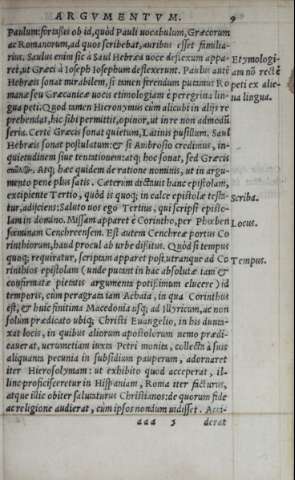 ARGVMENTVM. 9
Paulum: fortassis ob id, quòd Pauli uocabulum, Græcorum
ac Romanorum, ad quos scribebat, auribus esset familia-
rius. Saulus enim sic à Saul Hebræa uoce deflexum appa-
ret, ut Græci à Ioseph Iosephum deflexerunt. Paulus autē
Hebræis sonat mirabilem, si tamen ferendum putamus Ro
manæ seu Græcanicæ uocis etimologiam è peregrina lin-
gua peti. Quod tamen Hieronymus cùm alicubi in alijs re
prehendat, hic sibi permittit, opinor, ut in re non admodū
seria. Certè Græcis sonat quietum, Latinis pusillum. Saul
Hebræis sonat postulatum: & si Ambrosio credimus, in-
quietudinem siue tentationem: atq; hoc sonat, sed Græcis
Atq; hæc quidem de ratione nominis, ut in argu-
mento pene plus satis. Cæterum dictauit hanc epistolam,
excipiente Tertio, quòd is quoq; in calce epistolæ testa-
tur, adijciens: Saluto uos ego Tertius, qui scripsi episto-
lam in domino. Missam apparet è Corintho, per Phœben
fœminam Cenchreensem. Est autem Cenchreæ portus Co
rinthiorum, haud procul ab urbe dissitus. Quòd si tempus
quoq; requiratur, scriptam apparet post utranque ad Co
rinthios epistolam (unde puxunt in hac absolutæ iam &
confirmatæ pietatis argumenta potissimum elucere) id
temporis, cùm peragratam Achaia, in qua Corinthus
est, & huic finitima Macedonia usq; ad Illyricum, ac non
solùm prædicato ubiq; Christi Euangelio, in his dunta-
xat locis, in quibus aliorum apostolorum nemo prædi-
cauerat, uerumetiam iuxta Petri monita, collecta à suis
aliquanta pecunia in subsidium pauperum, adornaret
iter Hierosolymam: ut exhibito quod acceperat, il-
linc proficisceretur in Hispaniam, Roma iter facturus,
atque illic obiter salutaturus Christianos: de quorum fide
ac religione audierat, cùm ipsos nondum uidisset. Acci-
aaa 3 derat
Etymologi-
am nō rectè
peti ex alie-
na lingua.
Scriba.
Locus.
Tempus.